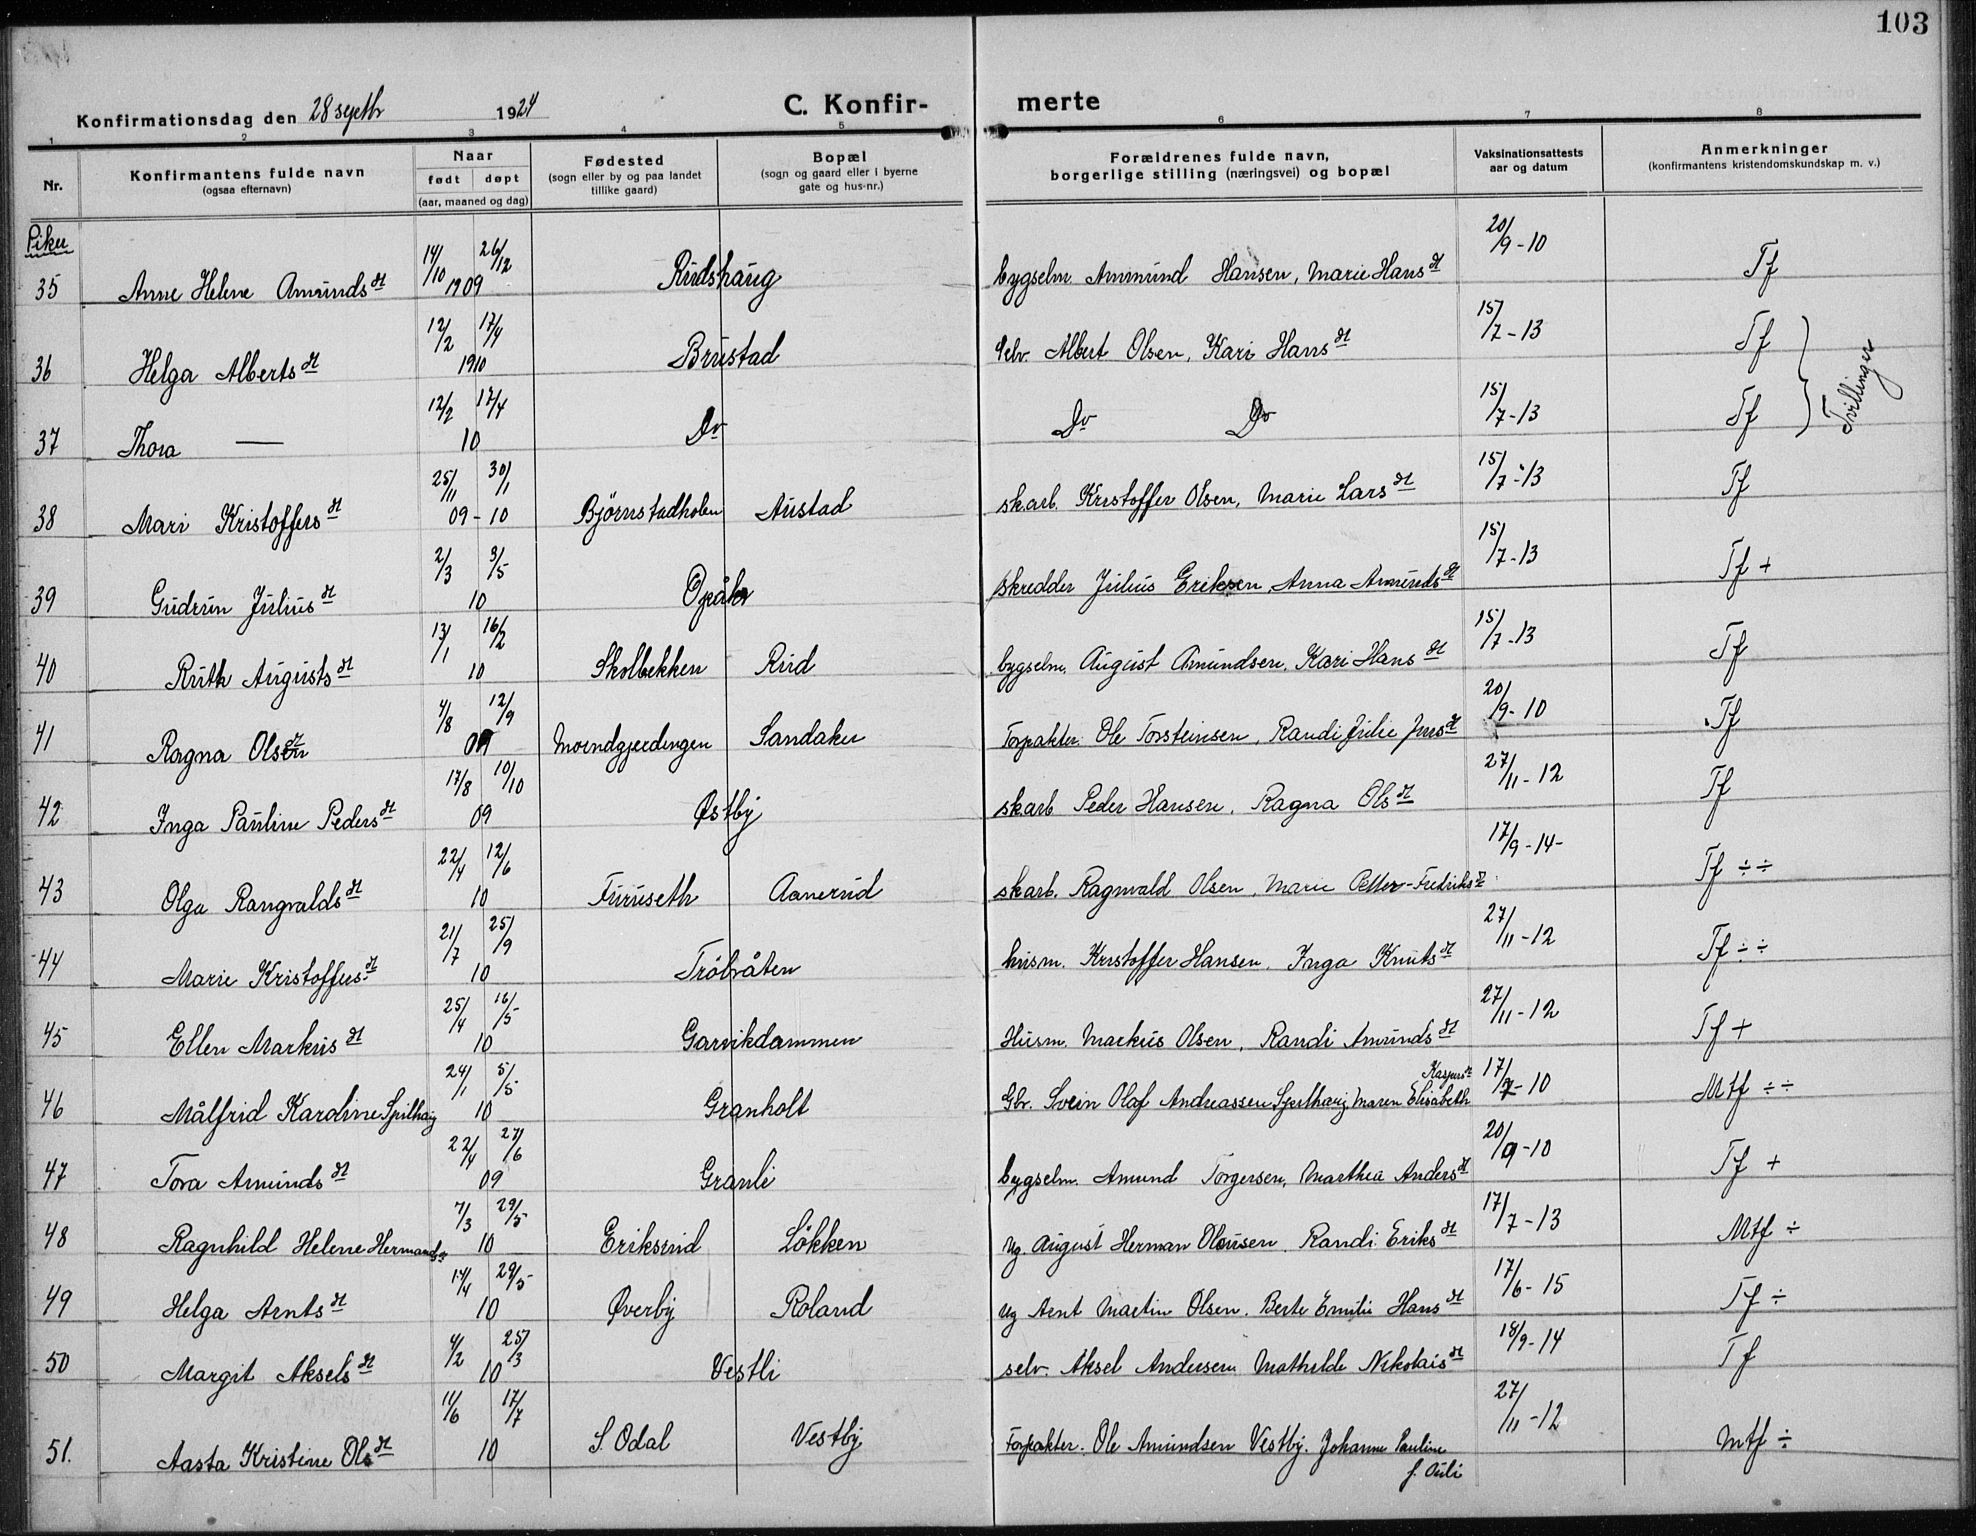 103
Konfirmationsdag den 28 septbr 1924 C. Konfir- merte
1 2 3 4 5 6 7 8
Nr. Konfirmantens fulde navn (ogsaa efternavn) Naar født døpt (aar, maaned og dag) Fødested (sogn eller by og paa landet tillike gaard) Bopæl (sogn og gaard eller i byerne gate og hus-nr.) Forældrenes fulde navn, borgerlige stilling (næringsvei) og bopæl Vaksinationsattests aar og datum Anmerkninger (konfirmantens kristendomskundskap m. v.)
Piker
35 Anne Helene Amundsdt 14/10 26/12 1909 Rudshaug bygselm. Ammund Hansen, Marie Hansdt 20/9-10 Tf
36 Helga Albertsdt 12/2 17/4 1910 Brustad Selv. Albert Olsen, Kari Hansdt 15/7-13 Tf
37 Thora — 12/2 17/4 10 Do Do Do 15/7-13 Tf Tvillinger
38 Mari Kristoffersdt 25/11 30/1 09-10 Bjørnstadholen Austad skarb. Kristoffer Olsen, Marie Larsdt 15/7-13 Tf
39 Gudrun Juliusdt 2/3 3/5 10 Opåkr skredder Julius Eriksen, Anna Amundsdt 15/7-13 Tf +
40 Ruth Augustsdt 13/1 16/2 10 Skolbekken Rud bygselm. August Amundsen, Kari Hansdt 15/7-13 Tf
41 Ragna Olsdt 4/8 12/9 09 Moendgjerdingen Sandaker Forpakter. Ole Torsteinsen, Randi Julie Jensdt 20/9-10 Tf
42 Inga Pauline Pedersdt 17/8 10/10 09 Østby skarb Peder Hansen, Ragna Olsdt 27/11-12 Tf
43 Olga Rangvaldsdt 22/4 12/6 10 Furuseth Aanerud skarb. Ragnvald Olsen, Marie Petter-Fredriksdt 17/9-14- Tf ÷÷
44 Marie Kristoffersdt 21/7 25/9 10 Tröbråten husm. Kristoffer Hansen, Inga Knutsdt 27/11-12 Tf ÷÷
45 Ellen Markusdt 25/4 16/5 10 Garvikdammen Husm. Markus Olsen, Randi Amundsdt 27/11-12 Tf +
46 Målfrid Karoline Spilhaug 24/1 5/5 10 Granholt Gbr. Svein Olaf Andreassen Spilhaug, Maren Elisabeth Kaspersdt 17/7-10 Mtf ÷÷
47 Tora Amundsdt 22/4 27/6 09 Granli bygselm. Amund Torgersen, Marthea Andersdt 20/9-10 Tf +
48 Ragnhild Helene Hermansdt 7/3 29/5 10 Eriksrud Løkken ug. August Herman Olausen. Randi Eriksdt 17/7-13 Mtf ÷
49 Helga Arntsdt 14/4 29/5 10 Øverby Roland ug Arnt Martin Olsen. Berte Emilie Hansdt 17/6-15 Tf ÷
50 Margit Akselsdt 4/2 25/3 10 Vestli selv. Aksel Andersen Mathilde Nikolaisdt 18/9-14 Tf
51. Aasta Kristine Olsdt 11/6 17/7 10 S. Odal Vestby Forpakter. Ole Amundsen Vestby. Johanne Pauline f. Auli 27/11-12 Mtf ÷